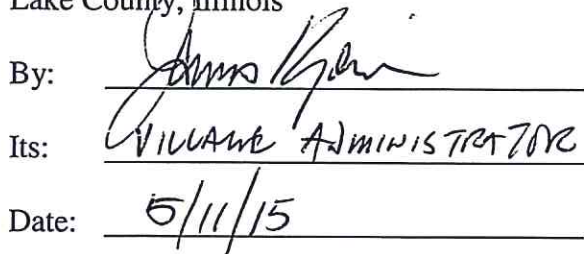 Lake County, Illinois
By:
Its: VILLAGE ADMINISTRATOR
Date: 5/11/15